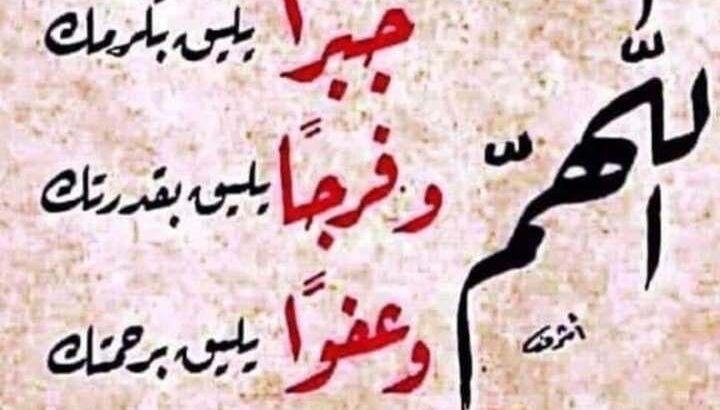 اللّهمّ
جبرا يليق بكرمك
وفرجًا يليق بقدرتك
وعفوًا يليق برحمتك